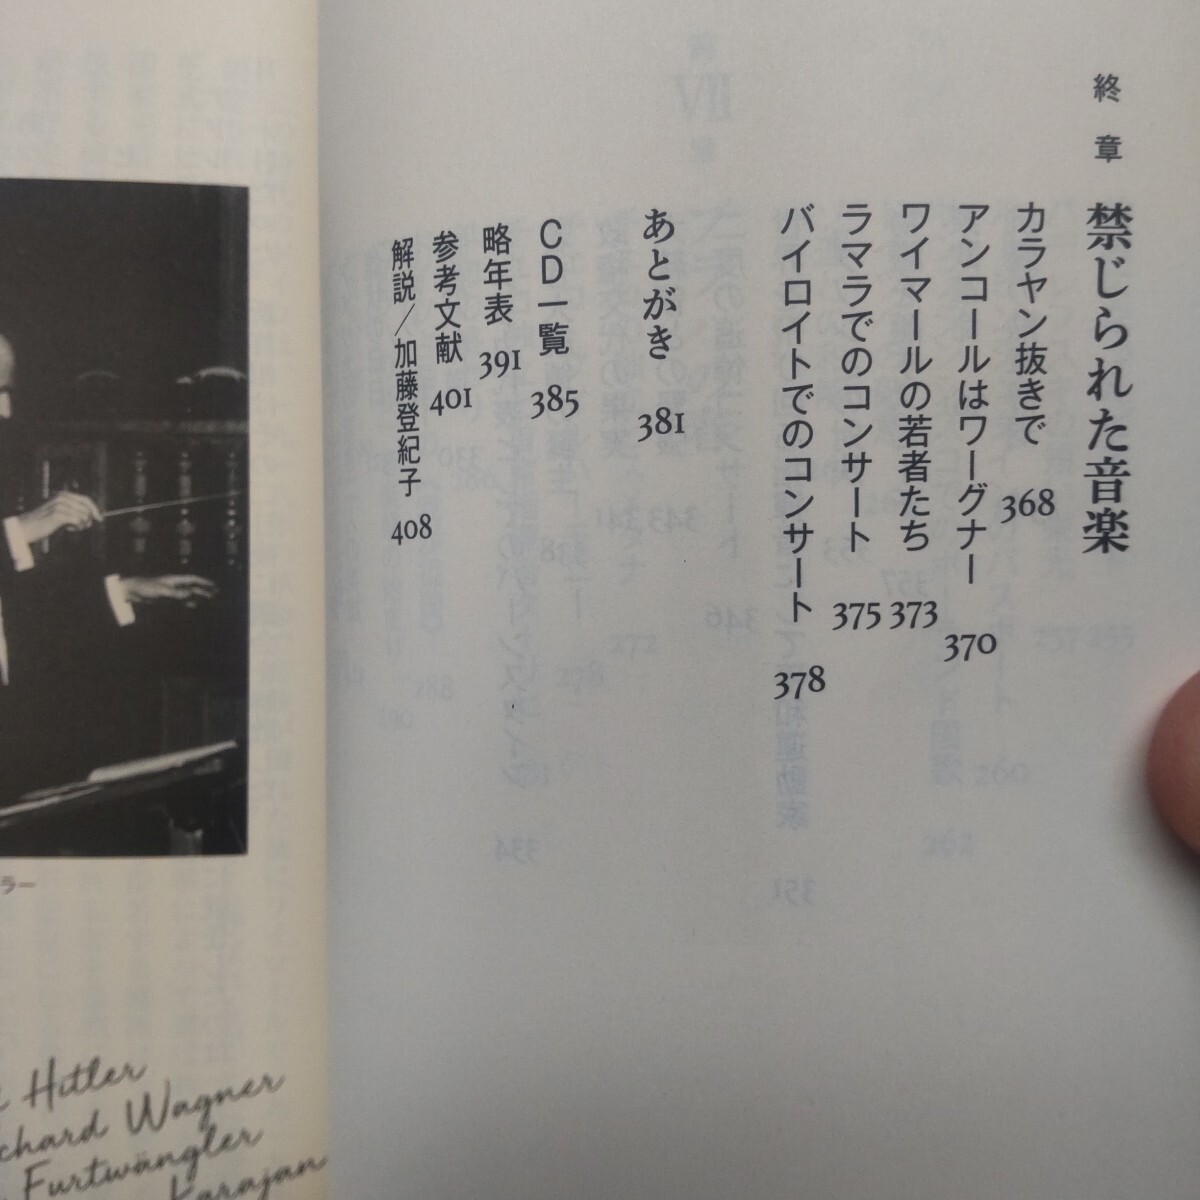 終章 禁じられた音楽
カラヤン抜きで 368
アンコールはワーグナー 370
ワイマールの若者たち 373
ラマラでのコンサート 375
バイロイトでのコンサート 378
あとがき 381
CD一覧 385
略年表 391
参考文献 401
解説/加藤登紀子 408
ラー
Hitler
chard Wagner
Furtwängler
Karajan